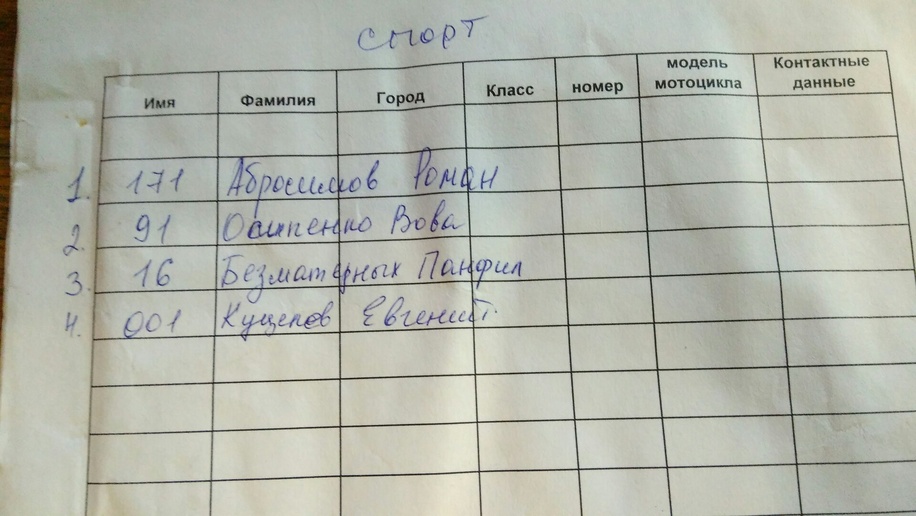 спорт
Имя Фамилия Город Класс номер модель мотоцикла Контактные данные
1. 171 Абросимов Роман
2. 91 Осипенко Вова
3. 16 Безматерных Панфил
4. 001 Кущепов Евгений